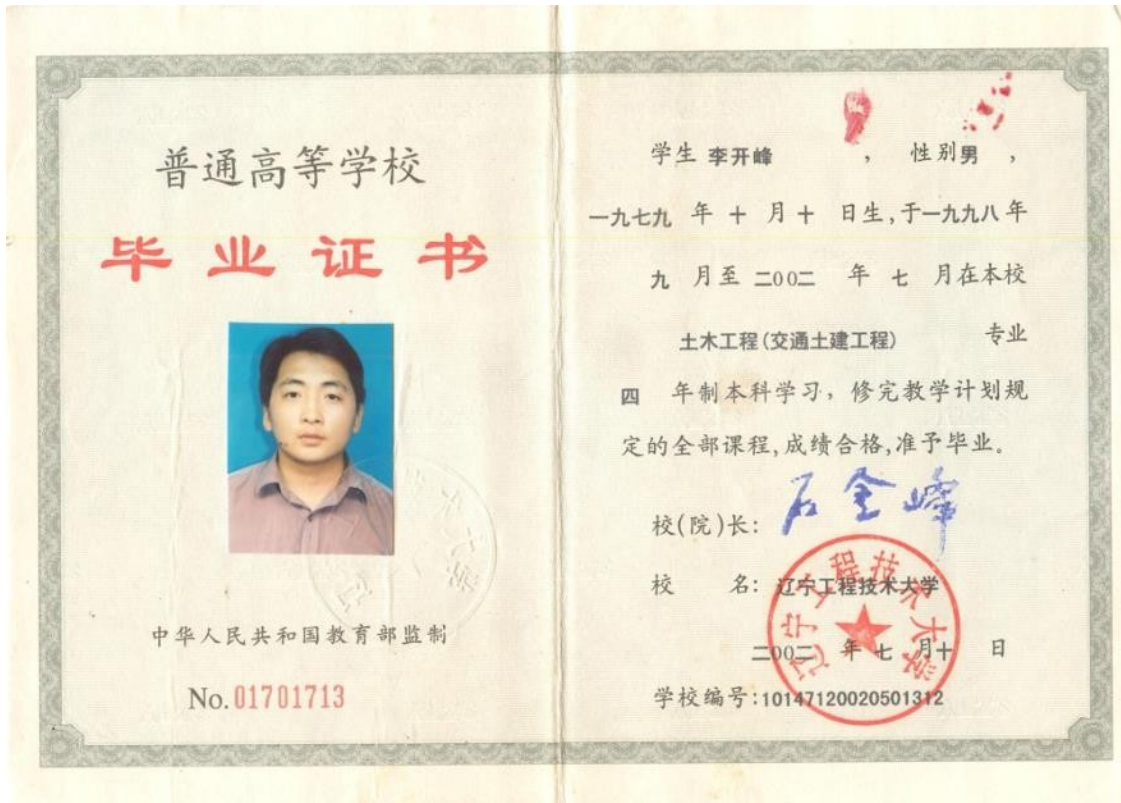 普通高等学校
毕业证书
中华人民共和国教育部监制
No.01701713
学生 李开峰 ，性别男，
一九七九 年 十 月 十 日生,于一九九八年
九 月至 二00二 年 七 月在本校
土木工程(交通土建工程) 专业
四 年制本科学习，修完教学计划规
定的全部课程,成绩合格,准予毕业。
校(院)长: 石金峰
校 名: 辽宁工程技术大学
二00二 年 七 月十 日
学校编号:10147120020501312
辽宁工程技术大学